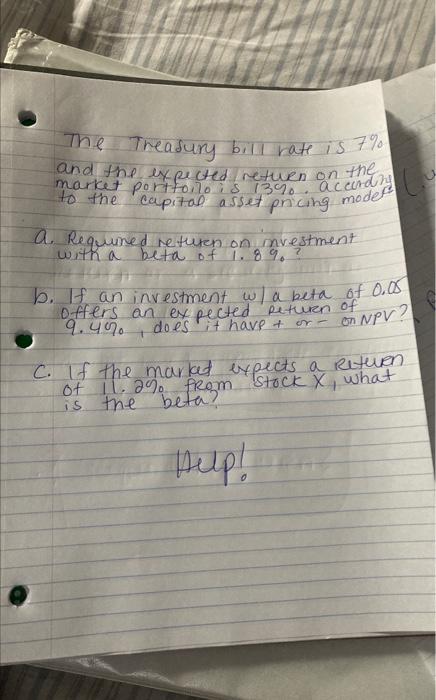 The Treasury bill rate is 7%
and the expected return on the
market portfoilo is 13%. according
to the capital asset pricing model
a. Requined return on investment
with a beta of 1.8%?
b. If an investment w/a beta of 0.05
offers an expected return of
9.4%, does it have + or - on NPV?
c. If the market expects a Return
of 11.2% from stock X, what
is the beta?
Help!